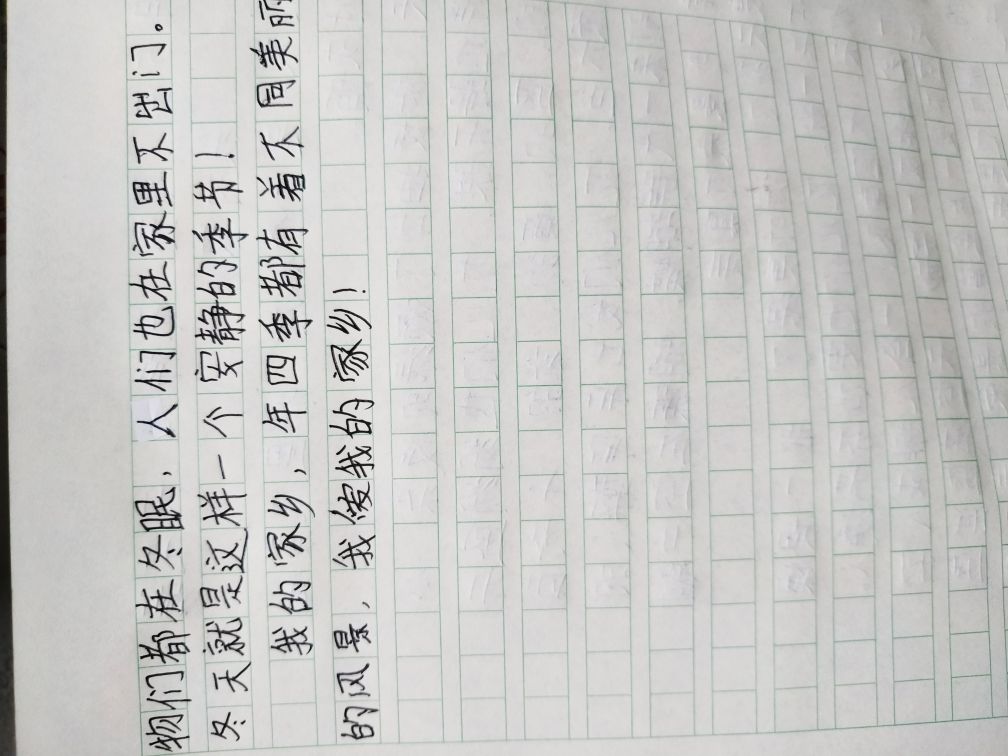 物们都在冬眠，人们也在家里不出门。
冬天就是这样一个安静的季节！
我的家乡，年四季都有着不同美丽
的风景，我爱我的家乡！